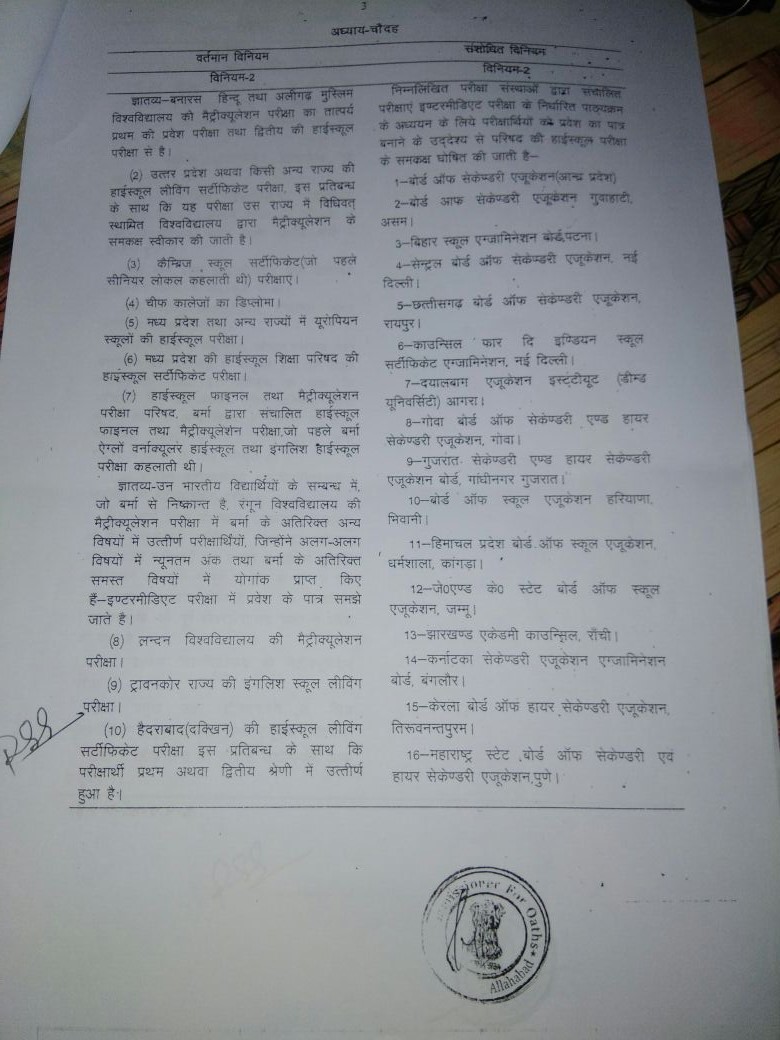 3
अध्याय-चौदह
वर्तमान विनियम
विनियम-2
ज्ञातव्य-बनारस हिन्दू तथा अलीगढ़ मुस्लिम
विश्वविद्यालय की मैट्रीक्यूलेशन परीक्षा का तात्पर्य
प्रथम की प्रवेश परीक्षा तथा द्वितीय की हाईस्कूल
परीक्षा से है।
(2) उत्तर प्रदेश अथवा किसी अन्य राज्य की
हाईस्कूल लीविंग सर्टीफिकेट परीक्षा, इस प्रतिबन्ध
के साथ कि यह परीक्षा उस राज्य में विधिवत्
स्थापित विश्वविद्यालय द्वारा मैट्रीक्यूलेशन के
समकक्ष स्वीकार की जाती है।
(3) कैम्ब्रिज स्कूल सर्टीफिकेट(जो पहले
सीनियर लोकल कहलाती थी) परीक्षाए।
(4) चीफ कालेजों का डिप्लोमा।
(5) मध्य प्रदेश तथा अन्य राज्यों में यूरोपियन
स्कूलों की हाईस्कूल परीक्षा।
(6) मध्य प्रदेश की हाईस्कूल शिक्षा परिषद की
हाईस्कूल सर्टीफिकेट परीक्षा।
(7) हाईस्कूल फाइनल तथा मैट्रीक्यूलेशन
परीक्षा परिषद, बर्मा द्वारा संचालित हाईस्कूल
फाइनल तथा मैट्रीक्यूलेशन परीक्षा,जो पहले बर्मा
ऐंग्लों वर्नाक्यूलर हाईस्कूल तथा इंगलिश हाईस्कूल
परीक्षा कहलाती थी।
ज्ञातव्य-उन भारतीय विद्यार्थियों के सम्बन्ध में,
जो बर्मा से निष्कान्त है, रंगून विश्वविद्यालय की
मैट्रीक्यूलेशन परीक्षा में बर्मा के अतिरिक्त अन्य
विषयों में उत्तीर्ण परीक्षार्थियों, जिन्होंने अलग-अलग
विषयों में न्यूनतम अंक तथा बर्मा के अतिरिक्त
समस्त विषयों में योगांक प्राप्त किए
हैं-इण्टरमीडिएट परीक्षा में प्रवेश के पात्र समझे
जाते है।
(8) लन्दन विश्वविद्यालय की मैट्रीक्यूलेशन
परीक्षा।
(9) ट्रावनकोर राज्य की इंगलिश स्कूल लीविंग
परीक्षा।
(10) हैदराबाद(दक्खिन) की हाईस्कूल लीविंग
सर्टीफिकेट परीक्षा इस प्रतिबन्ध के साथ कि
परीक्षार्थी प्रथम अथवा द्वितीय श्रेणी में उत्तीर्ण
हुआ है।
संशोधित विनियम
विनियम-2
निम्नलिखित परीक्षा संस्थाओं द्वारा संचालित
परीक्षाएं इण्टरमीडिएट परीक्षा के निर्धारित पाठ्यक्रम
के अध्ययन के लिये परीक्षार्थियों को प्रवेश का पात्र
बनाने के उद्देश्य से परिषद की हाईस्कूल परीक्षा
के समकक्ष घोषित की जाती है-
1-बोर्ड ऑफ सेकेण्डरी एजूकेशन(आन्ध्र प्रदेश)
2-बोर्ड आफ सेकेण्डरी एजूकेशन गुवाहाटी,
असम।
3-बिहार स्कूल एग्जामिनेशन बोर्ड,पटना।
4-सेन्ट्रल बोर्ड ऑफ सेकेण्डरी एजूकेशन, नई
दिल्ली।
5-छत्तीसगढ़ बोर्ड ऑफ सेकेण्डरी एजूकेशन,
रायपुर।
6-काउन्सिल फार दि इण्डियन स्कूल
सर्टीफिकेट एग्जामिनेशन, नई दिल्ली।
7-दयालबाग एजूकेशन इस्टंटीयूट (डीम्ड
यूनिवर्सिटी) आगरा।
8-गोवा बोर्ड ऑफ सेकेण्डरी एण्ड हायर
सेकेण्डरी एजूकेशन, गोवा।
9-गुजरात सेकेण्डरी एण्ड हायर सेकेण्डरी
एजूकेशन बोर्ड, गांधीनगर गुजरात।
10-बोर्ड ऑफ स्कूल एजूकेशन हरियाणा,
भिवानी।
11-हिमाचल प्रदेश बोर्ड ऑफ स्कूल एजूकेशन,
धर्मशाला, कांगड़ा।
12-जे0एण्ड के0 स्टेट बोर्ड ऑफ स्कूल
एजूकेशन, जम्मू।
13-झारखण्ड एकेडमी काउन्सिल, राँची।
14-कर्नाटका सेकेण्डरी एजूकेशन एग्जामिनेशन
बोर्ड, बंगलौर।
15-केरला बोर्ड ऑफ हायर सेकेण्डरी एजूकेशन,
तिरूवनन्तपुरम।
16-महाराष्ट्र स्टेट बोर्ड ऑफ सेकेण्डरी एवं
हायर सेकेण्डरी एजूकेशन,पुणे।
For Oaths
Allahabad